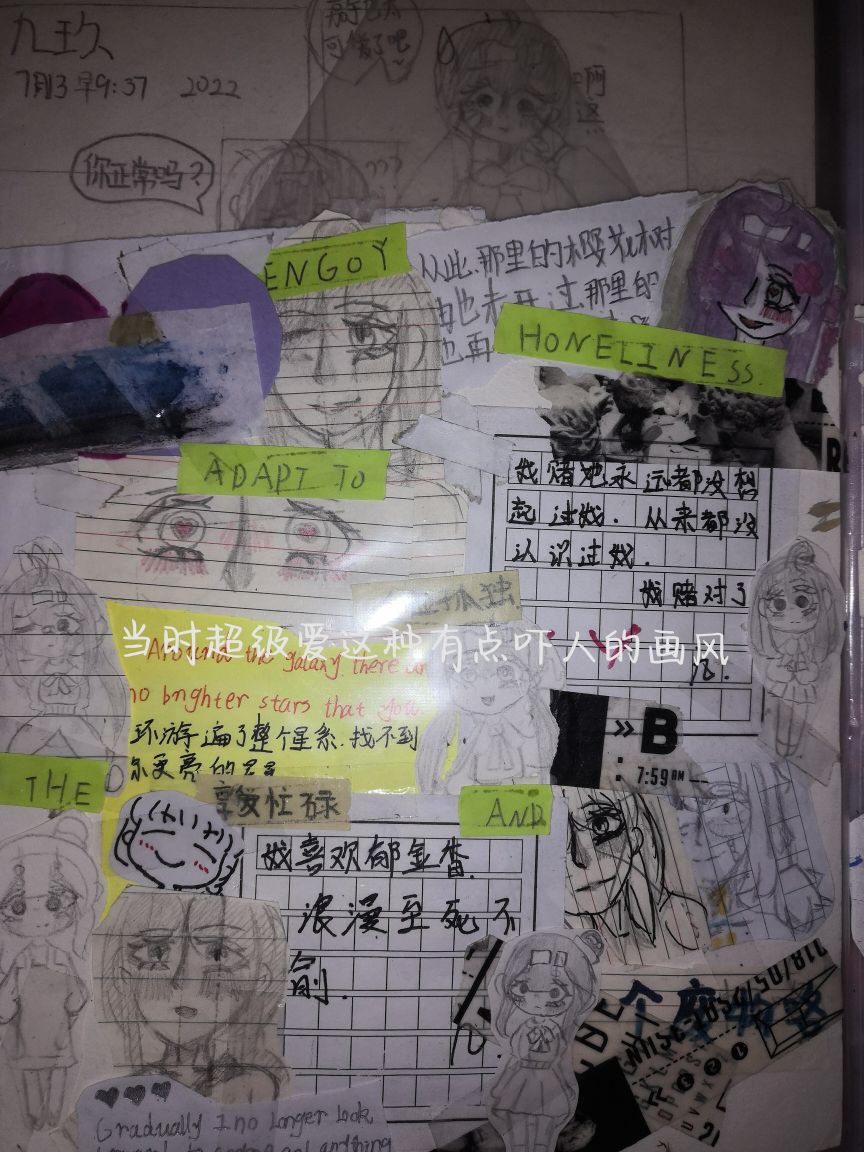 九玖
7月13 早9:37 2022
可爱了吧
啊
这
你正常吗?
???
ENGOY
从此,那里的樱花树
也未开过,那里的
也再
HONELINESS.
ADAPT TO
我赌她永远都没想
起过我.从来都没
认识过我.
我赌对了
孤独
当时超级爱这种有点吓人的画风
Around the galaxy there are
no brighter stars that you.
环游遍了整个星系.找不到
你更亮的星星
THE
享受忙碌
AND
B
7:59 AM
我喜欢郁金香
浪漫至死不
渝.
Gradually I no longer look